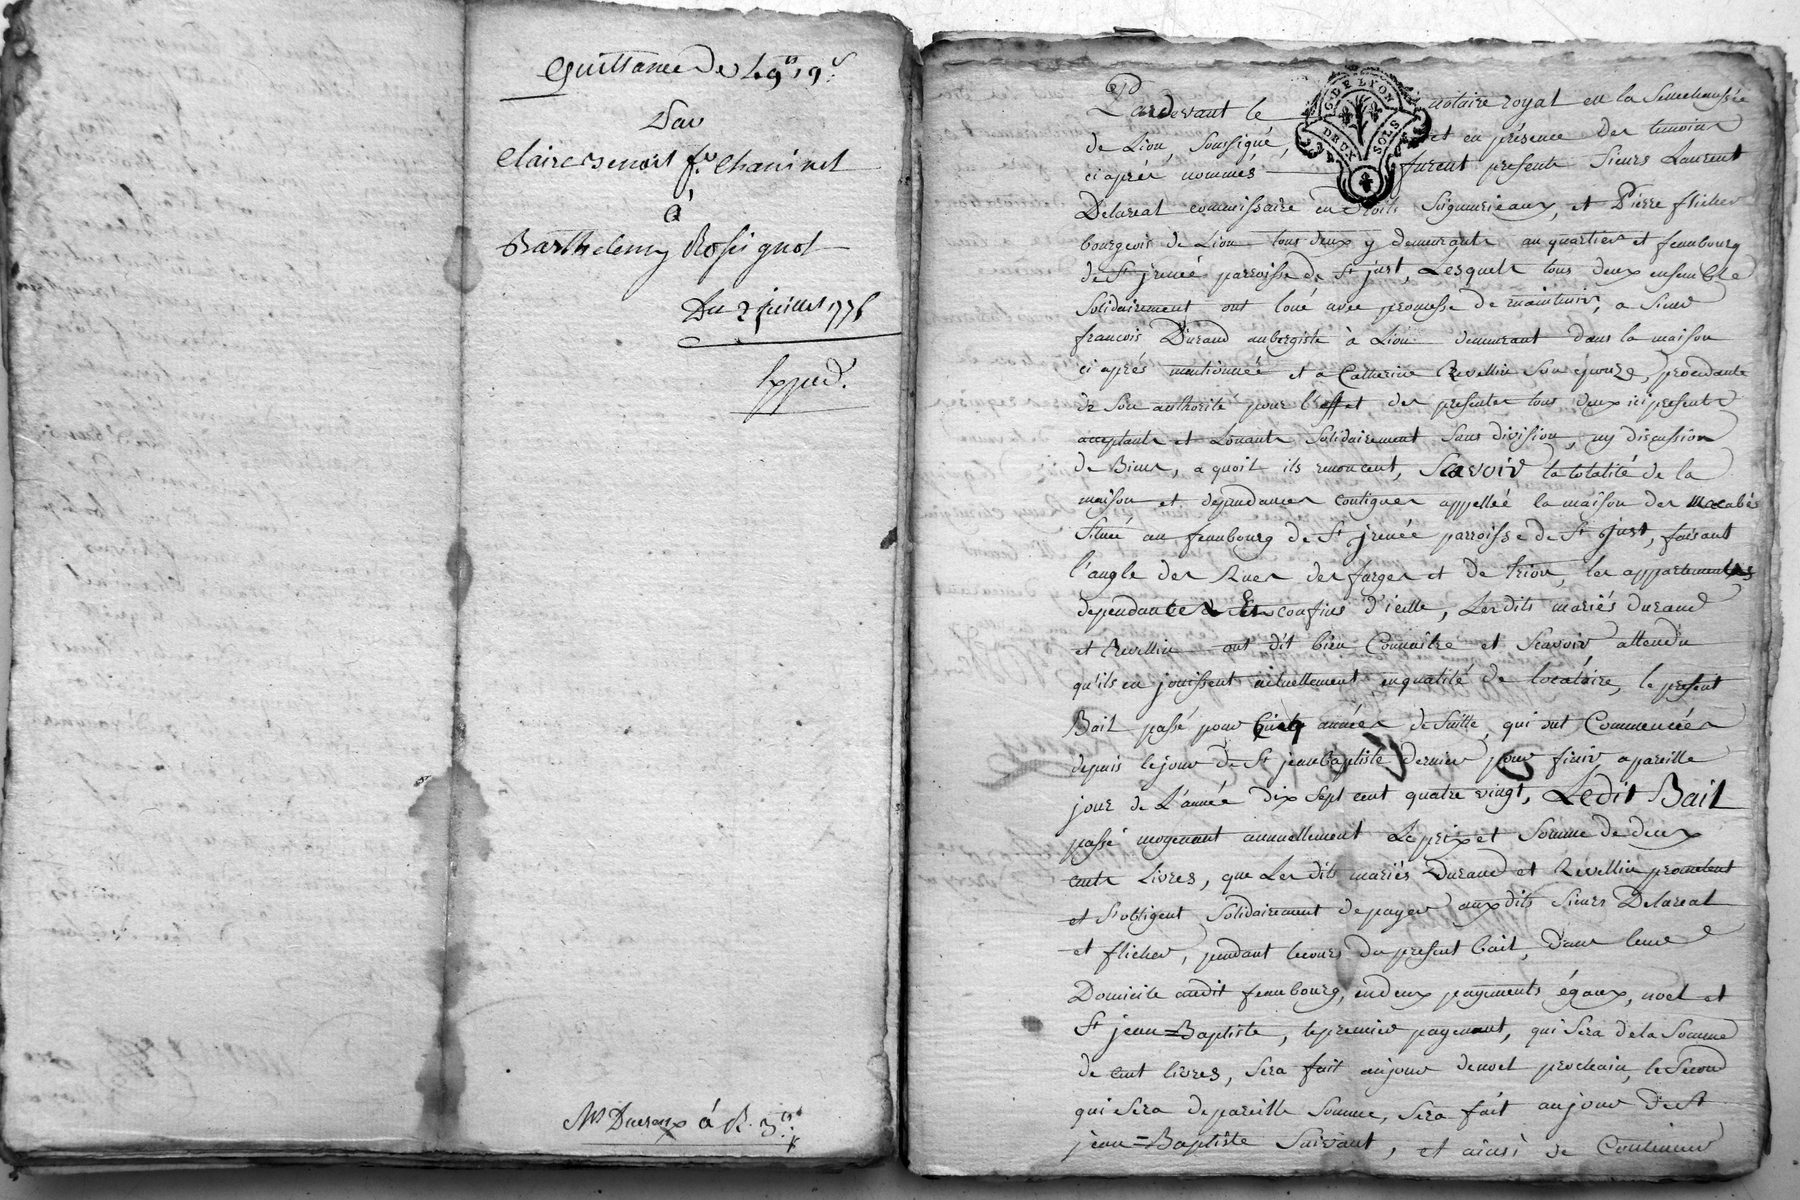 Quittance de 49ˡᵗ 19ˢ
Par
Claire Benoit fᵉ Chaninel
à
Barthelemy Rossignol
Du 2 juillet 1775
Expedˢ.
Mʳ Ducreux à R. 3ˡᵗ
Pardevant le notaire royal en la Senechaussée
G. DE LYON
DEUX SOLS
de Lion, Soussigné, et en présence des temoins
ci aprés nommés furent presents Sieurs Laurent
Delareal commissaire en droits Seigneuriaux, et Pierre flicher
bourgeois de Lion tous deux y demeurants au quartier et feaubourg
de St jrenée parroisse de St just, Lesquels tous deux ensemble
Solidairement ont loué avec promesse de maintenir, a Sieur
francois Durand aubergiste à Lion demeurant dans la maison
ci aprés mentionneé et a Catherine Revellin Son epouze, procedante
de Son authorité pour l'effet des presentes tous deux ici presents
acceptants et Louants Solidairement Sans division, ny discussion
de Biens, a quoit ils renoncent, Scavoir la totalité de la
maison et dependances contigues appelleé la maison des Macabés
Situeé au feaubourg de St jreneé parroisse de St Just, faisant
l'angle des Rues des farges et de trion, les appartements
dependances & les confins d'icelle, Lesdits mariés durand
et Revellin ont dit bien Connaître et Scavoir attendu
qu'ils en jouissent actuellement en qualité de locataire, le present
Bail passé pour Cinq années de Suitte, qui ont Commenceés
depuis le jour de St jean Baptiste dernier pour finir a pareille
jour de L'année dix Sept cent quatre vingt, Ledit Bail
passé moyenant annuellement Le prix et Somme de deux
cents Livres, que Les dits mariés Durand et Revellin promettent
et S'obligent Solidairement de payer aux dits Sieurs Delareal
et flicher, pendant le cours du present bail, dans leur
Domicile audit feaubourg, en deux payements égaux, noel et
St jean=Baptiste, le premier payement, qui Sera de la Somme
de cent livres, Sera fait au jour de noel prochain, le Second
qui Sera de pareille Somme, Sera fait au jour de St
jean=Baptiste Suivant, et ainsi de Continuer